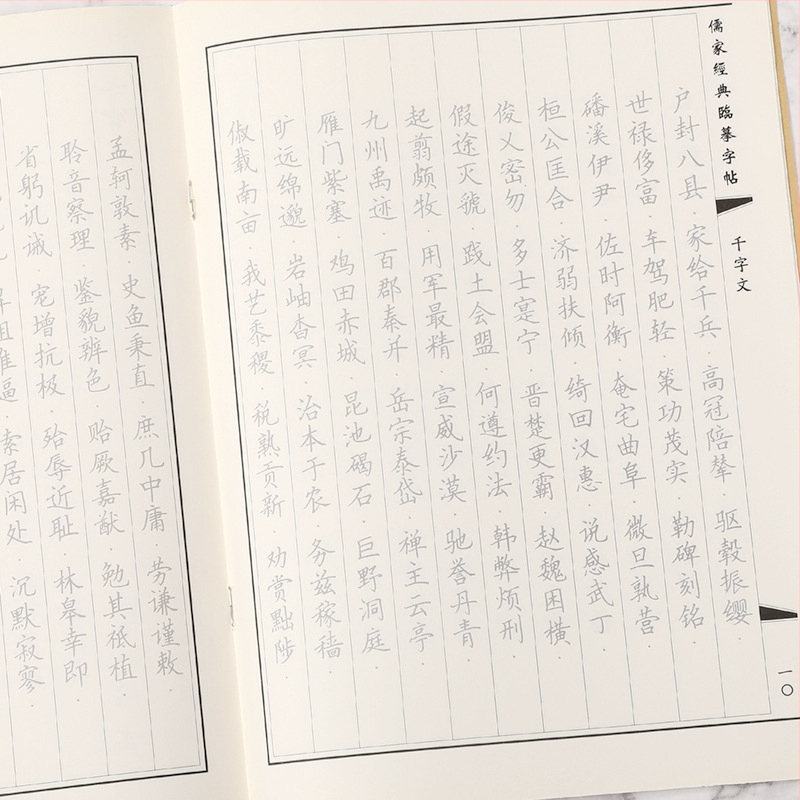 儒家經典臨摹字帖
千字文
一〇
户封八县·家给千兵·高冠陪辇·驱毂振缨·
世禄侈富·车驾肥轻·策功茂实·勒碑刻铭·
磻溪伊尹·佐时阿衡·奄宅曲阜·微旦孰营·
桓公匡合·济弱扶倾·绮回汉惠·说感武丁·
俊乂密勿·多士寔宁·晋楚更霸·赵魏困横·
假途灭虢·践土会盟·何遵约法·韩弊烦刑·
起翦颇牧·用军最精·宣威沙漠·驰誉丹青·
九州禹迹·百郡秦并·岳宗泰岱·禅主云亭·
雁门紫塞·鸡田赤城·昆池碣石·巨野洞庭·
旷远绵邈·岩岫杳冥·治本于农·务兹稼穑·
俶载南亩·我艺黍稷·税熟贡新·劝赏黜陟·
孟轲敦素·史鱼秉直·庶几中庸·劳谦谨敕·
聆音察理·鉴貌辨色·贻厥嘉猷·勉其祗植·
省躬讥诫·宠增抗极·殆辱近耻·林皋幸即·
索居闲处·沉默寂寥·